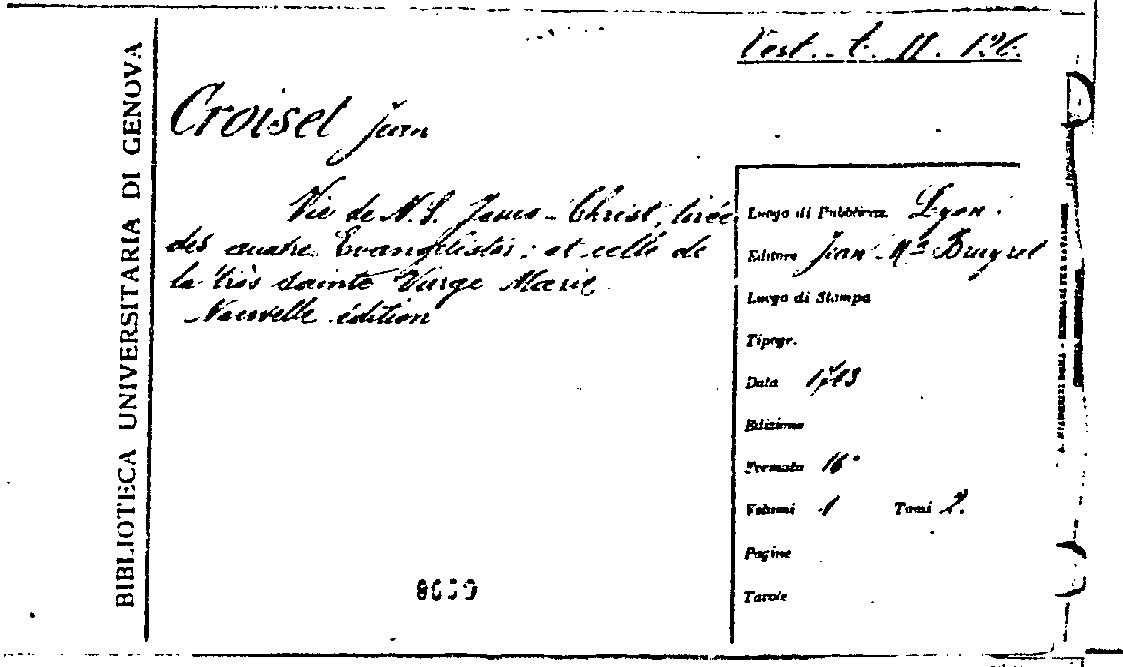 BIBLIOTECA UNIVERSITARIA DI GENOVA
Croiset Jean
Vie de N. S. Jesus-Christ, tirée
des quatre Evangelistes; et celle de
la très sainte Vierge Marie
Nouvelle édition
Luogo di Pubblicaz. Lyon.
Editore Jean Mie Bruyset
Luogo di Stampa
Tipogr.
Data
Edizione
Formato 16°
Volumi 1 Tomi 2.
Pagine
Tavole